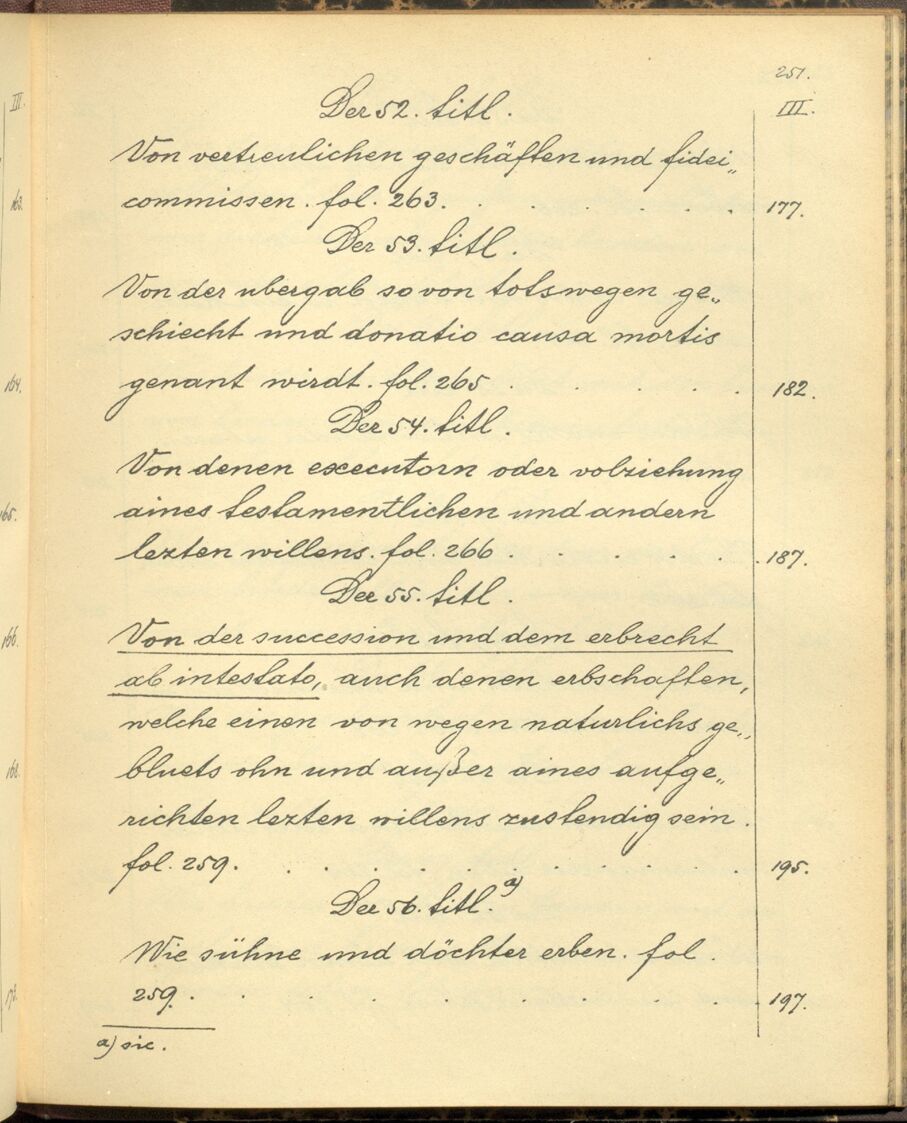 251.
Der 52. titl.
III.
Von vertreulichen geschäften und fidei„
commissen. fol. 263. . . . . . . 177.
Der 53. titl.
Von der ubergab so von totswegen ge„
schiecht und donatio causa mortis
genant wirdt. fol. 265 . . . . . 182.
Der 54. titl.
Von denen executorn oder volziehung
aines testamentlichen und andern
lezten willens. fol. 266 . . . . . . 187.
Der 55. titl.
Von der succession und dem erbrecht
ab intestato, auch denen erbschaften,
welche einen von wegen naturlichs ge„
bluets ohn und außer aines aufge„
richten lezten willens zustendig sein.
fol. 259. . . . . . . . . . 195.
Der 56. titl. a)
Wie sühne und döchter erben. fol.
259. . . . . . . . . 197.
a) sic.
III.
163.
164.
165.
166.
168.